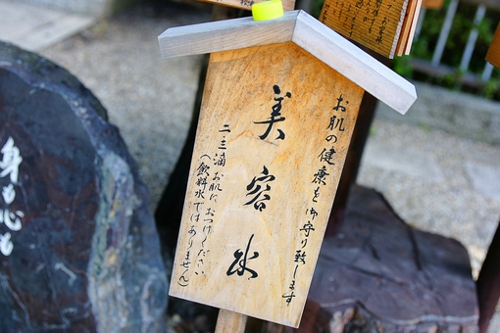 お肌の健康を御守り致します
美容水
二・三滴 お肌に おつけください
(飲料水ではありません)
身も心も